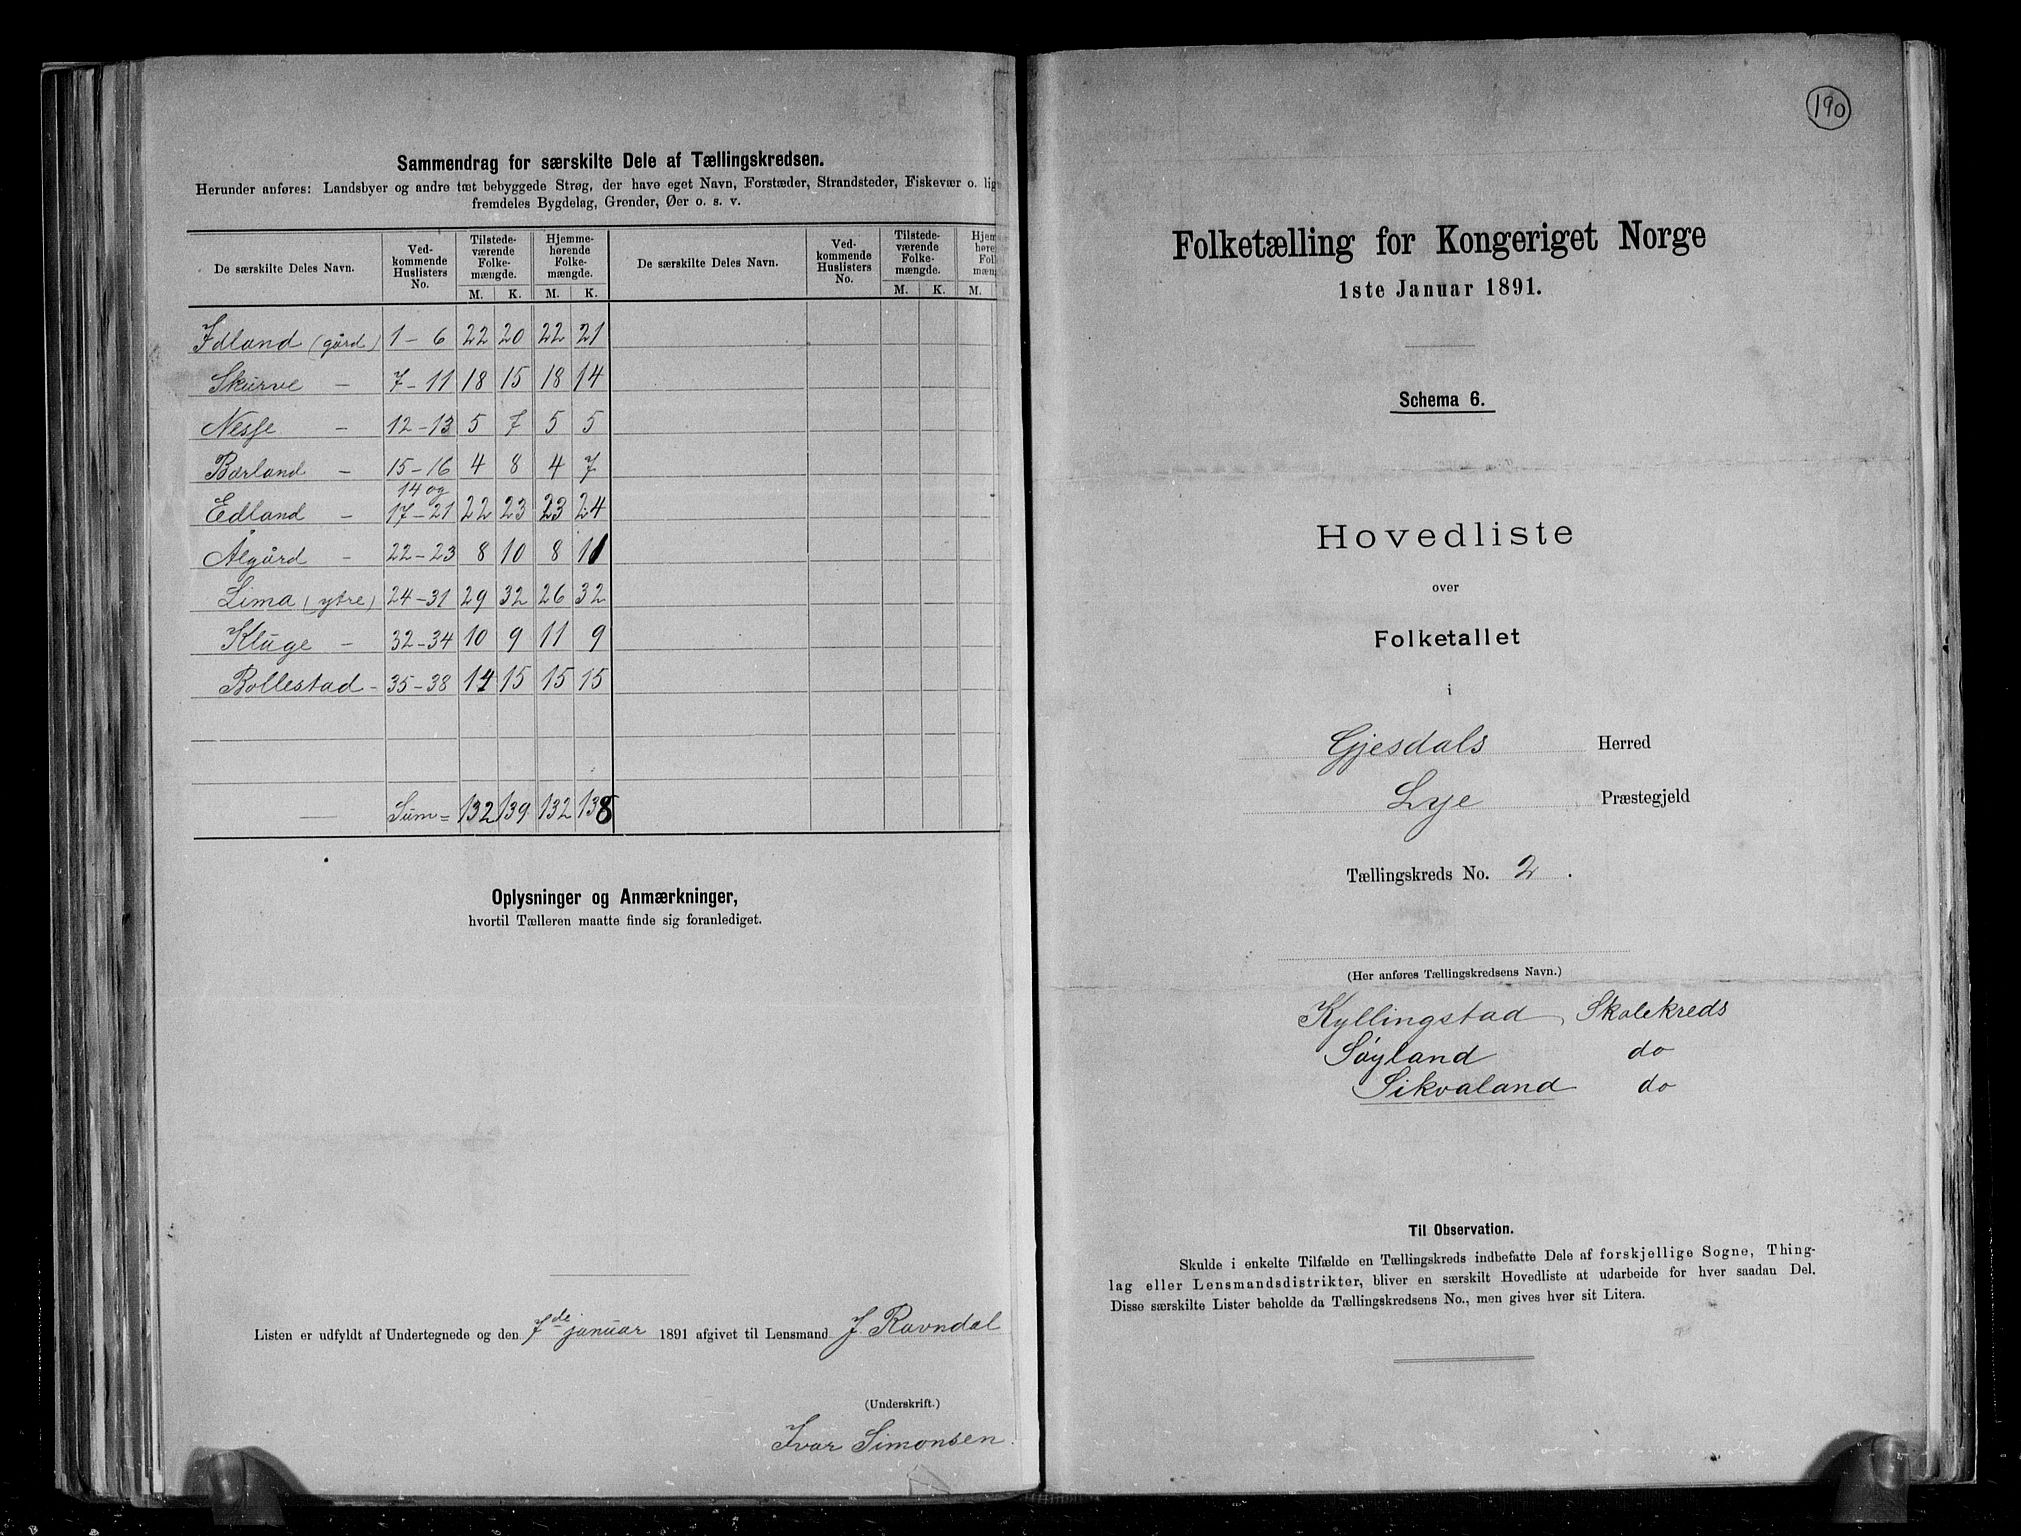 Sammendrag for særskilte Dele af Tællingskredsen.
Herunder anføres: Landsbyer og andre tæt bebyggede Strøg, der have eget Navn, Forstæder, Strandsteder, Fiskevær o. lign
fremdeles Bygdelag, Grender, Øer o. s. v.
De særskilte Deles Navn. Ved-kommende Huslisters No. Tilstede-værende Folke-mængde. Hjemme-hørende Folke-mængde. De særskilte Deles Navn. Ved-kommende Huslisters No. Tilstede-værende Folke-mængde. Hjem høre Fol mæng
M. K. M. K. M. K. M.
Idland (gård) 1 - 6 22 20 22 21
Skurve - 7 - 11 18 15 18 14
Nesse - 12 - 13 5 7 5 5
Bærland - 15 - 16 4 8 4 7
14 og
Edland - 17 - 21 22 23 23 24
Ålgård - 22 - 23 8 10 8 11
Lima (ytre) 24 - 31 29 32 26 32
Kluge - 32 - 34 10 9 11 9
Bollestad - 35 - 38 14 15 15 15
Sum = 132 139 132 138
Oplysninger og Anmærkninger,
hvortil Tælleren maatte finde sig foranlediget.
Listen er udfyldt af Undertegnede og den 7de januar 1891 afgivet til Lensmand J. Ravndal
(Underskrift.)
Ivar Simonsen.
190
Folketælling for Kongeriget Norge
1ste Januar 1891.
Schema 6.
Hovedliste
over
Folketallet
i
Gjesdals Herred
Lye Præstegjeld
Tællingskreds No. 2.
(Her anføres Tællingskredsens Navn.)
Kyllingstad Skolekreds
Søyland do
Sikvaland do
Til Observation.
Skulde i enkelte Tilfælde en Tællingskreds indbefatte Dele af forskjellige Sogne, Thing-
lag eller Lensmandsdistrikter, bliver en særskilt Hovedliste at udarbeide for hver saadan Del.
Disse særskilte Lister beholde da Tællingskredsens No., men gives hver sit Litera.